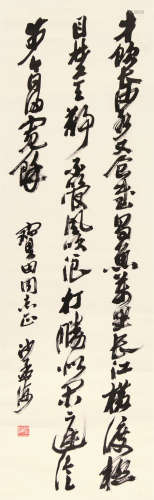 才饮长沙水又食武昌鱼万里长江横渡极
目楚天舒不管风吹浪打胜似闲庭信
步今日得宽馀
宝田同志正 沙孟海